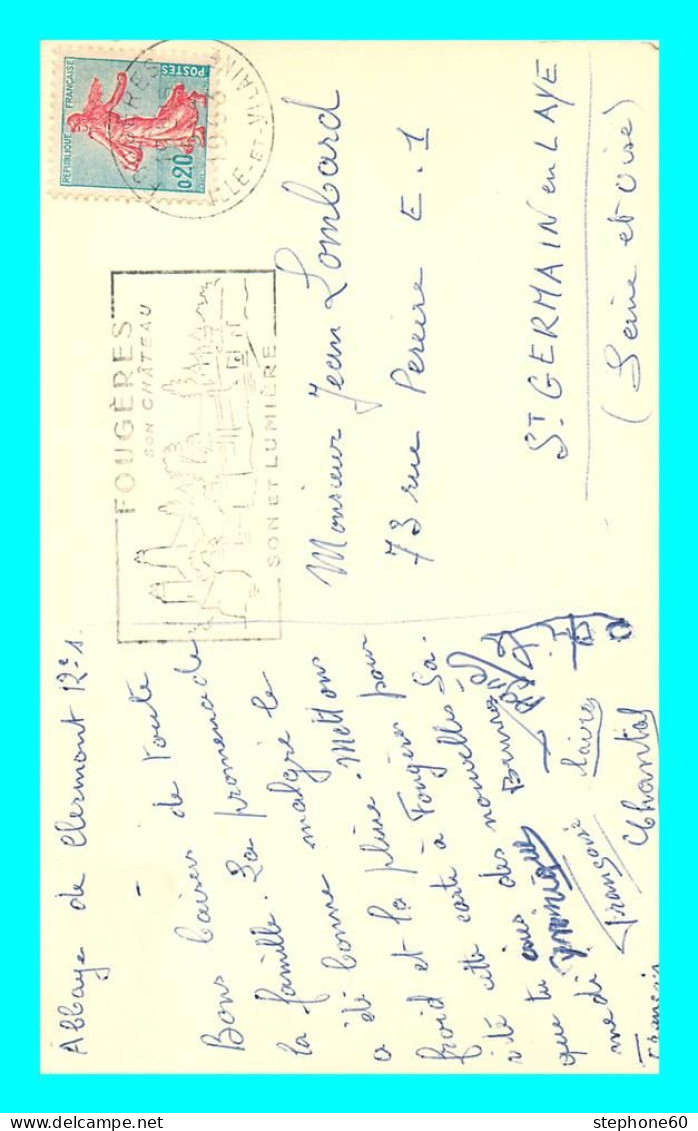 RÉPUBLIQUE FRANÇAISE
POSTES
0,20
ILLE-ET-VILAINE
FOUGÈRES
SON CHÂTEAU
SON ET LUMIÈRE
Abbaye de Clermont
Bons baisers de toute
la famille. La promenade
a été bonne malgré le
froid et la pluie. Mettons
vite cette carte à Fougères
que tu aies des nouvelles Sa-
medi.
Bruno
Dominique
Françoise
Claire
Chantal
François
Monsieur Jean Lombard
73 rue Pereire E.1
ST GERMAIN en LAYE
(Seine et Oise)
stephone60